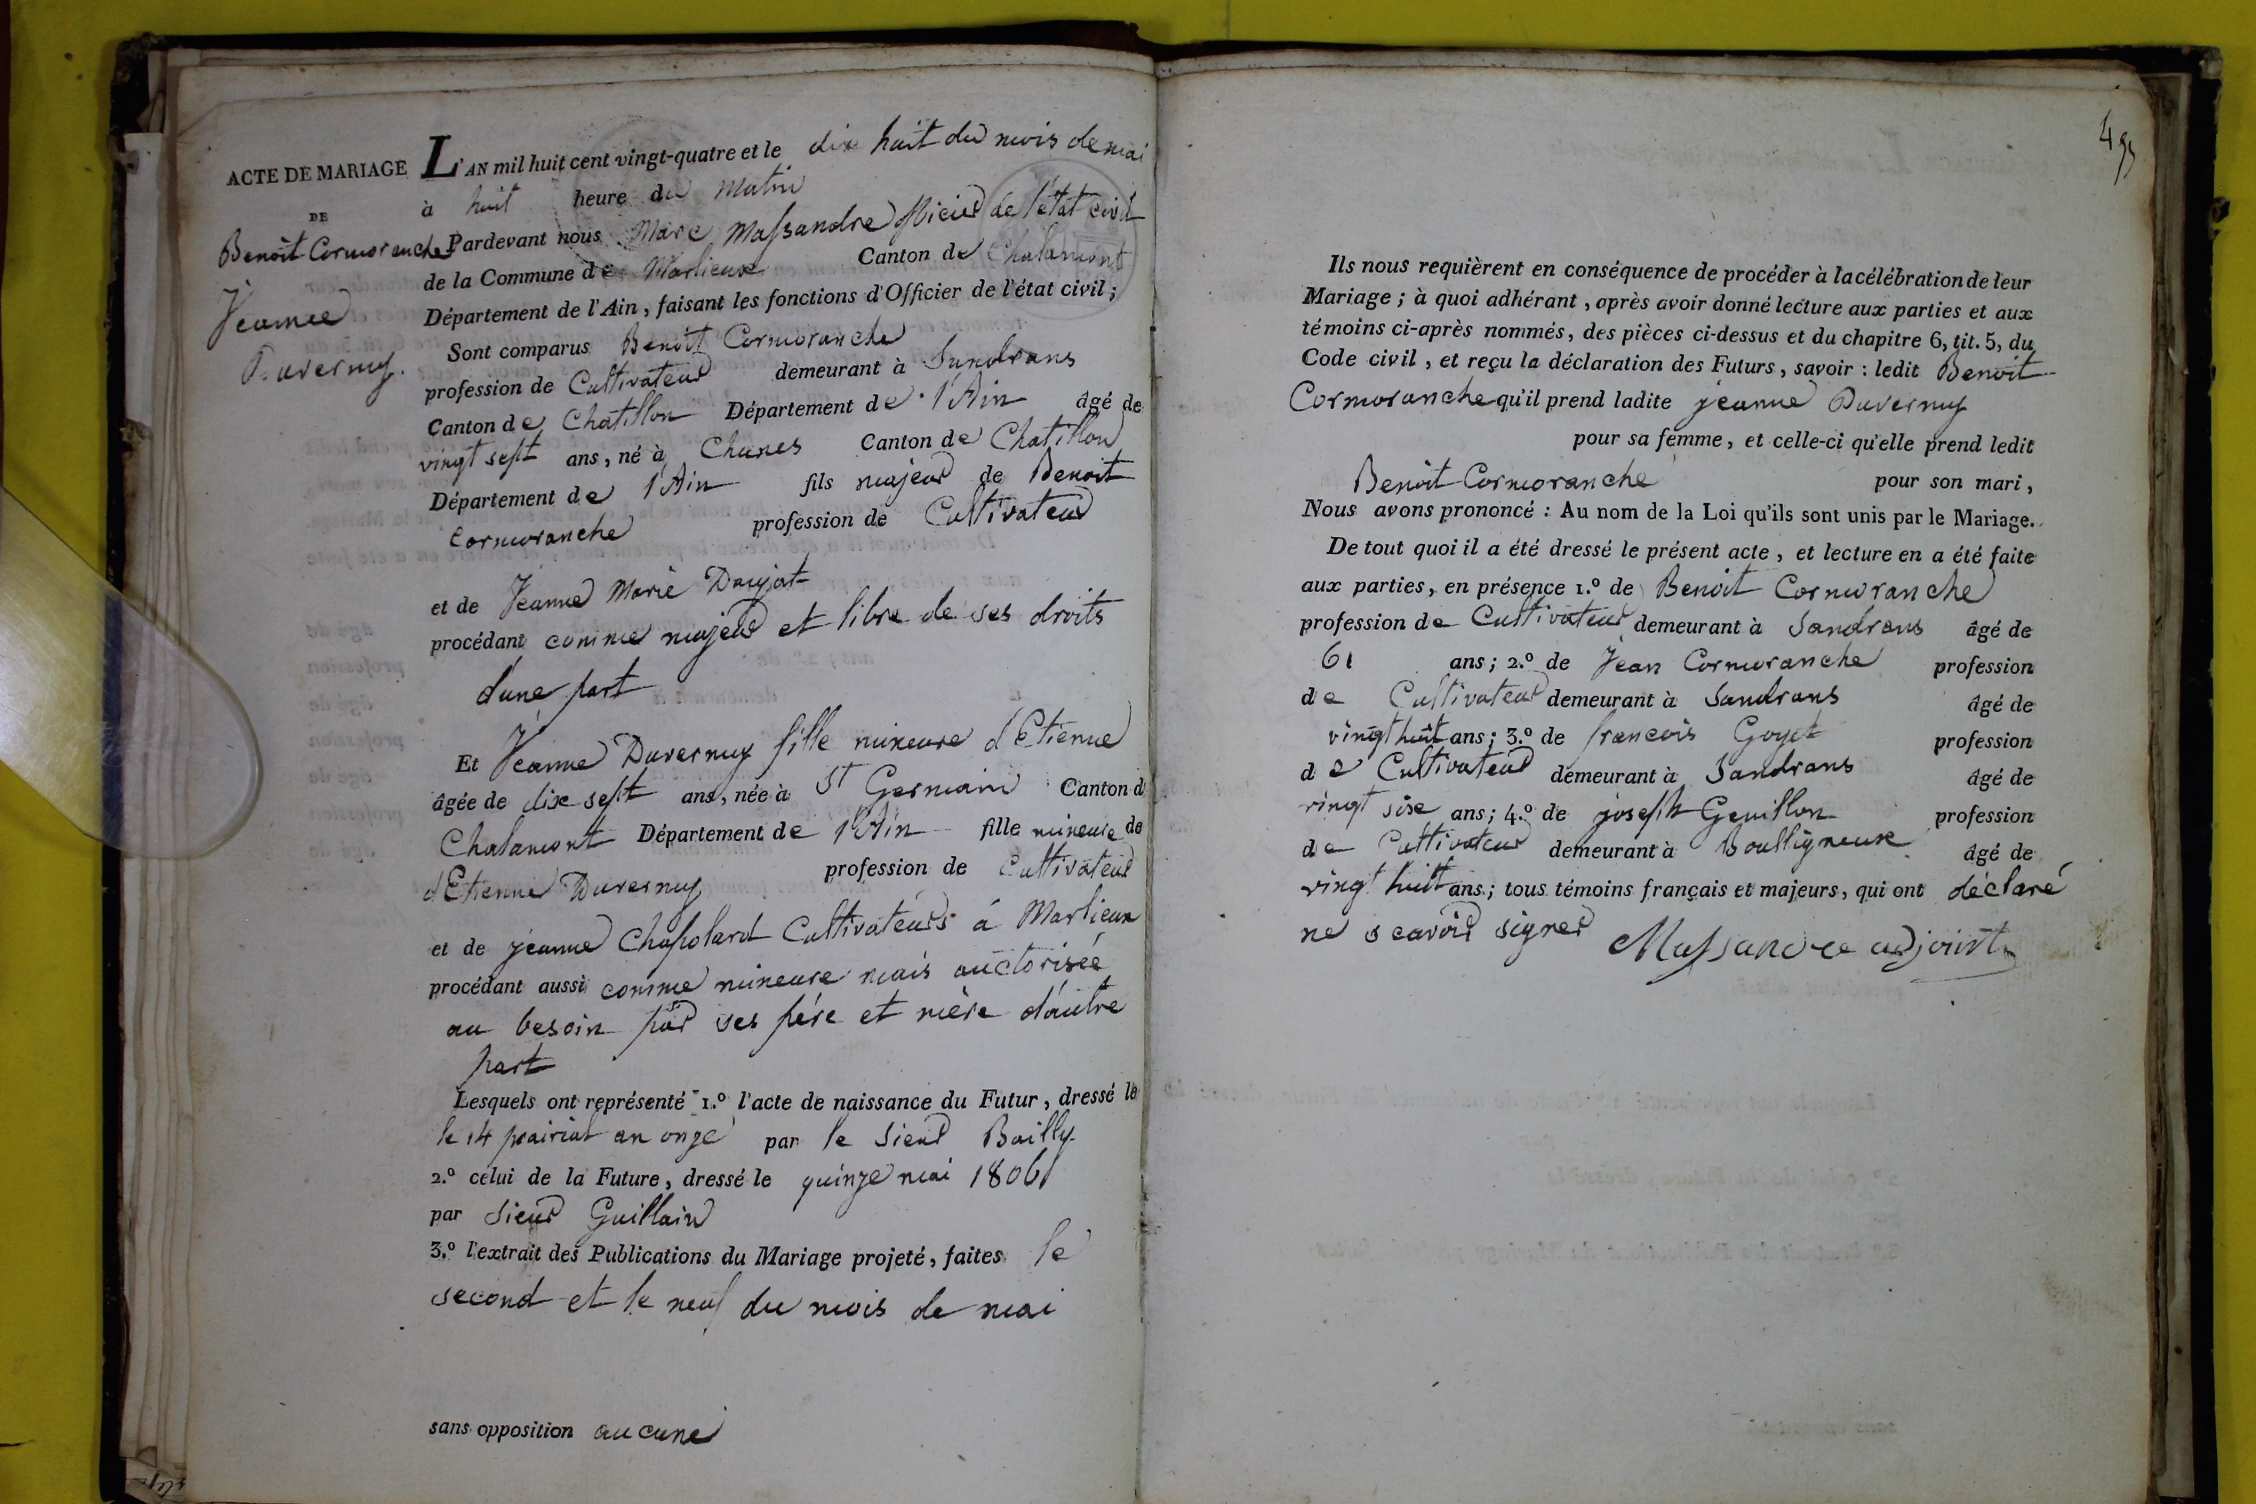 ACTE DE MARIAGE
DE
Benoît Cormoranche
Jeanne
Duvernuy.
L'AN mil huit cent vingt-quatre et le dix huit du mois de mai
à huit heure du matin
Pardevant nous Marc Massandre officier de l'état civil
de la Commune de Marlieux Canton de Chalamont
Département de l'Ain, faisant les fonctions d'Officier de l'état civil;
Sont comparus Benoît Cormoranche
profession de Cultivateur demeurant à Sandrans
Canton de Chatillon Département de l'Ain âgé de
vingt sept ans, né à Chanes Canton de Chatillon
Département de l'Ain fils majeur de Benoit
Cormoranche profession de Cultivateur
et de Jeanne Marie Daujat
procédant comme majeur et libre de ses droits
d'une part
Et Jeanne Duvernuy fille mineure d'Etienne
âgée de dix sept ans, née à St Germain Canton d
Chalamont Département de l'Ain fille mineure de
d'Etienne Duvernuy profession de Cultivateur
et de jeanne Chapolard Cultivateurs à Marlieux
procédant aussi comme mineure mais auctorisée
au besoin par ses père et mère d'autre
part
Lesquels ont représenté 1.º l'acte de naissance du Futur, dressé le
le 14 prairial an onze par le Sieur Bailly
2.º celui de la Future, dressé le quinze mai 1806
par Sieur Guillain
3.º l'extrait des Publications du Mariage projeté, faites le
second et le neuf du mois de mai
sans opposition aucune
Ils nous requièrent en conséquence de procéder à la célébration de leur
Mariage; à quoi adhérant, après avoir donné lecture aux parties et aux
témoins ci-après nommés, des pièces ci-dessus et du chapitre 6, tit. 5, du
Code civil, et reçu la déclaration des Futurs, savoir: ledit Benoît
Cormoranche qu'il prend ladite jeanne Duvernuy
pour sa femme, et celle-ci qu'elle prend ledit
Benoît Cormoranche pour son mari,
Nous avons prononcé: Au nom de la Loi qu'ils sont unis par le Mariage.
De tout quoi il a été dressé le présent acte, et lecture en a été faite
aux parties, en présence 1.º de Benoit Cormoranche
profession de Cultivateur demeurant à Sandrans âgé de
61 ans; 2.º de Jean Cormoranche profession
de Cultivateur demeurant à Sandrans âgé de
vingt huit ans; 3.º de francois Goyet profession
de Cultivateur demeurant à Sandrans âgé de
vingt sixe ans; 4.º de joseph Genillon profession
de Cultivateur demeurant à Boulligneux âgé de
vingt huit ans; tous témoins français et majeurs, qui ont déclaré
ne scavoir signer
Massandre adjoint